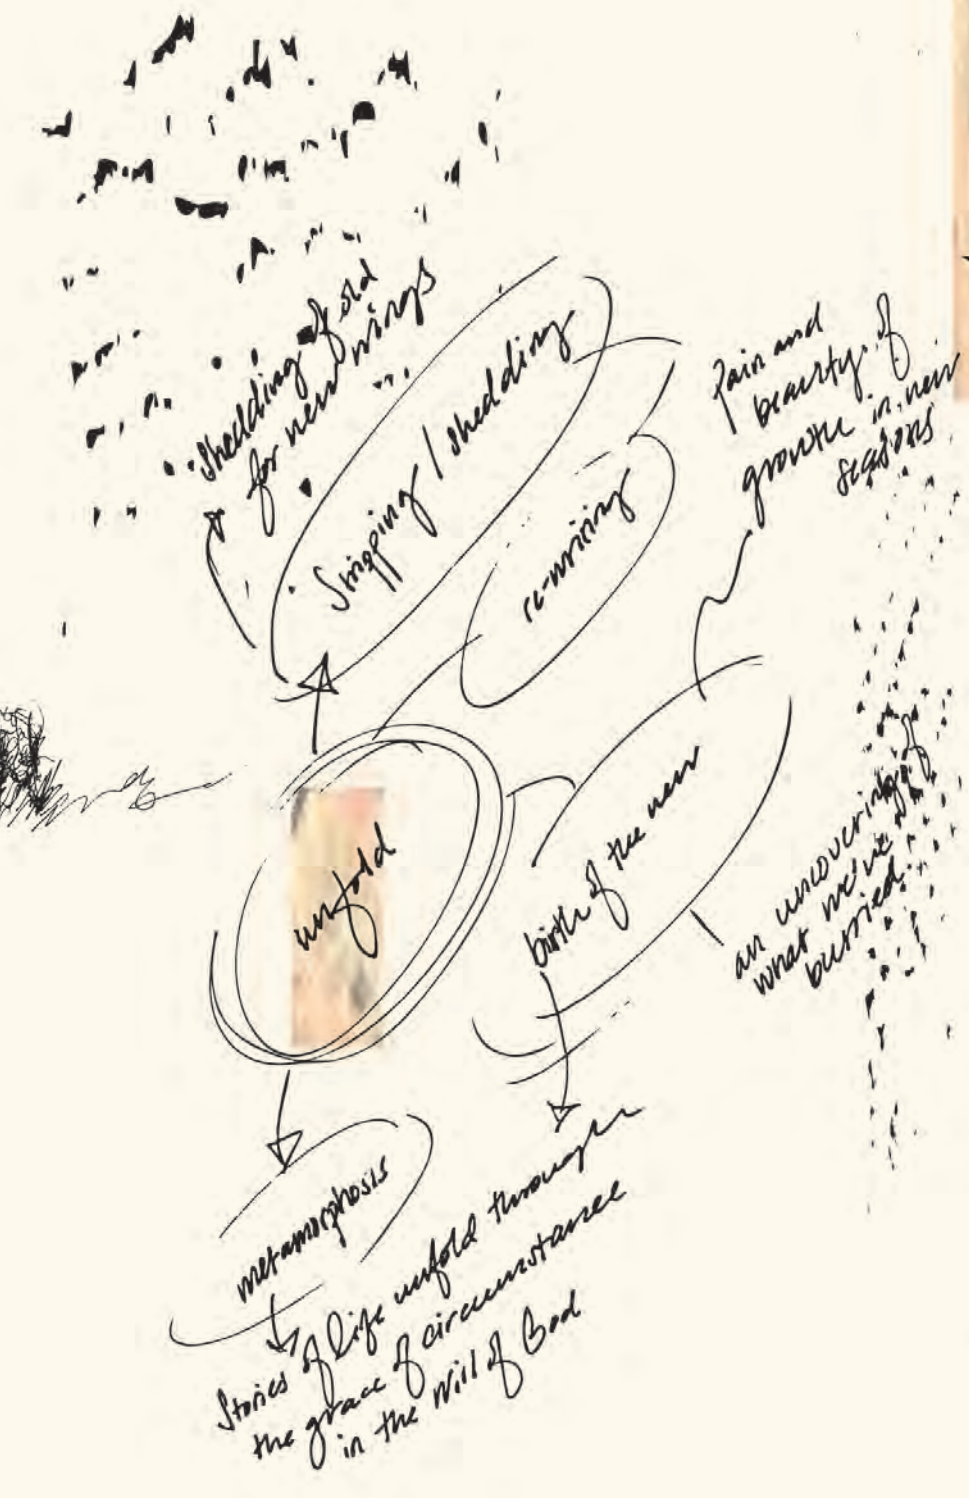 shedding of old
for new wings
Stripping / shedding
re-wiring
Pain and
beauty of
growth in new
seasons
unfold
birth of the new
an uncovering of
what we've
burried
metamorphosis
Stories of life unfold through
the grace of circumstance
in the Will of God